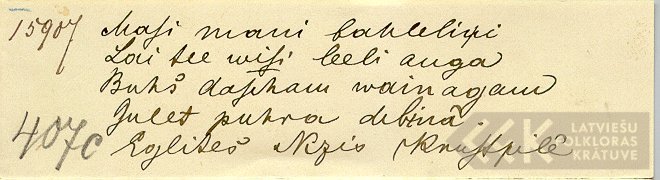 15907 Masi mani bahleliņi
Lai tee wisi leeli auga
Buhs dascham wainagam
Gulet puhra dibinâ.
4070 Eglites Krustpilê
LATVIEŠU
FOLKLORAS
KRĀTUVE